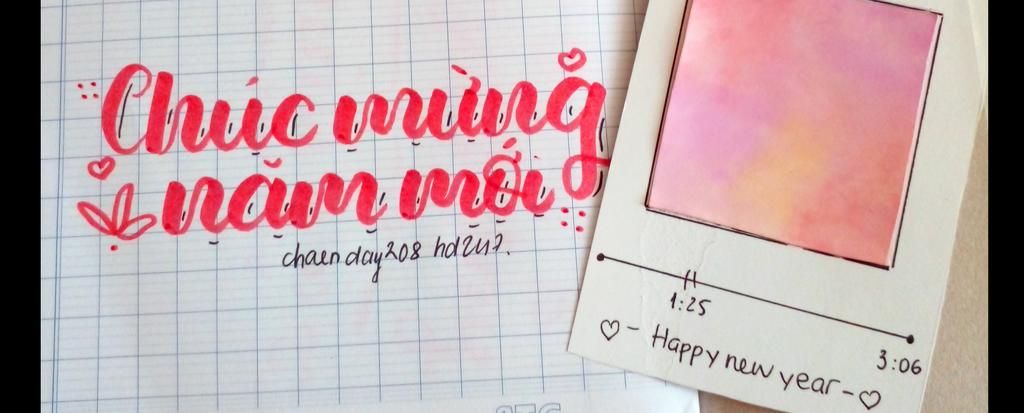 Chúc mừng
năm mới
chaenday208 hd247.
1:25
3:06
Happy new year